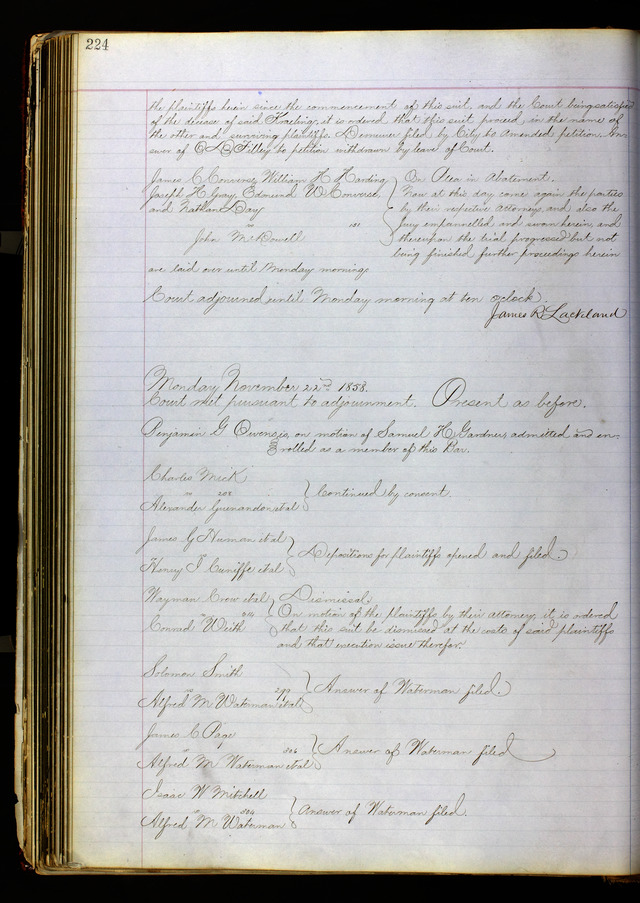 224
the plaintiffs herein since the commencement of this suit, and the Court being satisfied
of the decease of said it is ordered that this suit proceed, in the name of
the other and surviving plaintiffs. Demurrer filed by City to Amended petition. An-
swer of O D Filley to petition withdrawn by leave of Court.
James C Converse, William H Harding
Joseph H Gray, Edmund W Converse,
and Nathan Day
vs 181
John McDowell
On Plea in Abatement.
Now at this day come again the parties
by their respective attorneys, and also the
Jury empannelled and sworn herein, and
thereupon the trial progressed but not
being finished further proceedings herein
are laid over until Monday morning
Court adjourned until Monday morning at ten o'clock
James R Lackland
Monday November 22nd 1858.
Court met pursuant to adjournment. Present as before.
Benjamin G on motion of Samuel H Gardner, admitted and en-
rolled as a member of this Bar.
Charles Mick
vs 203
Alexander et al
Continued by consent.
James G et al
vs
Henry T Cuniffe et al
Depositions for plaintiffs opened and filed
Wayman Crow et al
vs 214
Conrad Weith
Dismissal.
On motion of the plaintiffs, by their attorney, it is ordered
that this suit be dismissed at the costs of said plaintiffs
and that execution issue therefor.
Solomon Smith
vs 299
Alfred M Waterman et al
Answer of Waterman filed.
James C Page
vs 306
Alfred M Waterman et al
Answer of Waterman filed
Isaac W Mitchell
vs 304
Alfred M Waterman
Answer of Waterman filed.